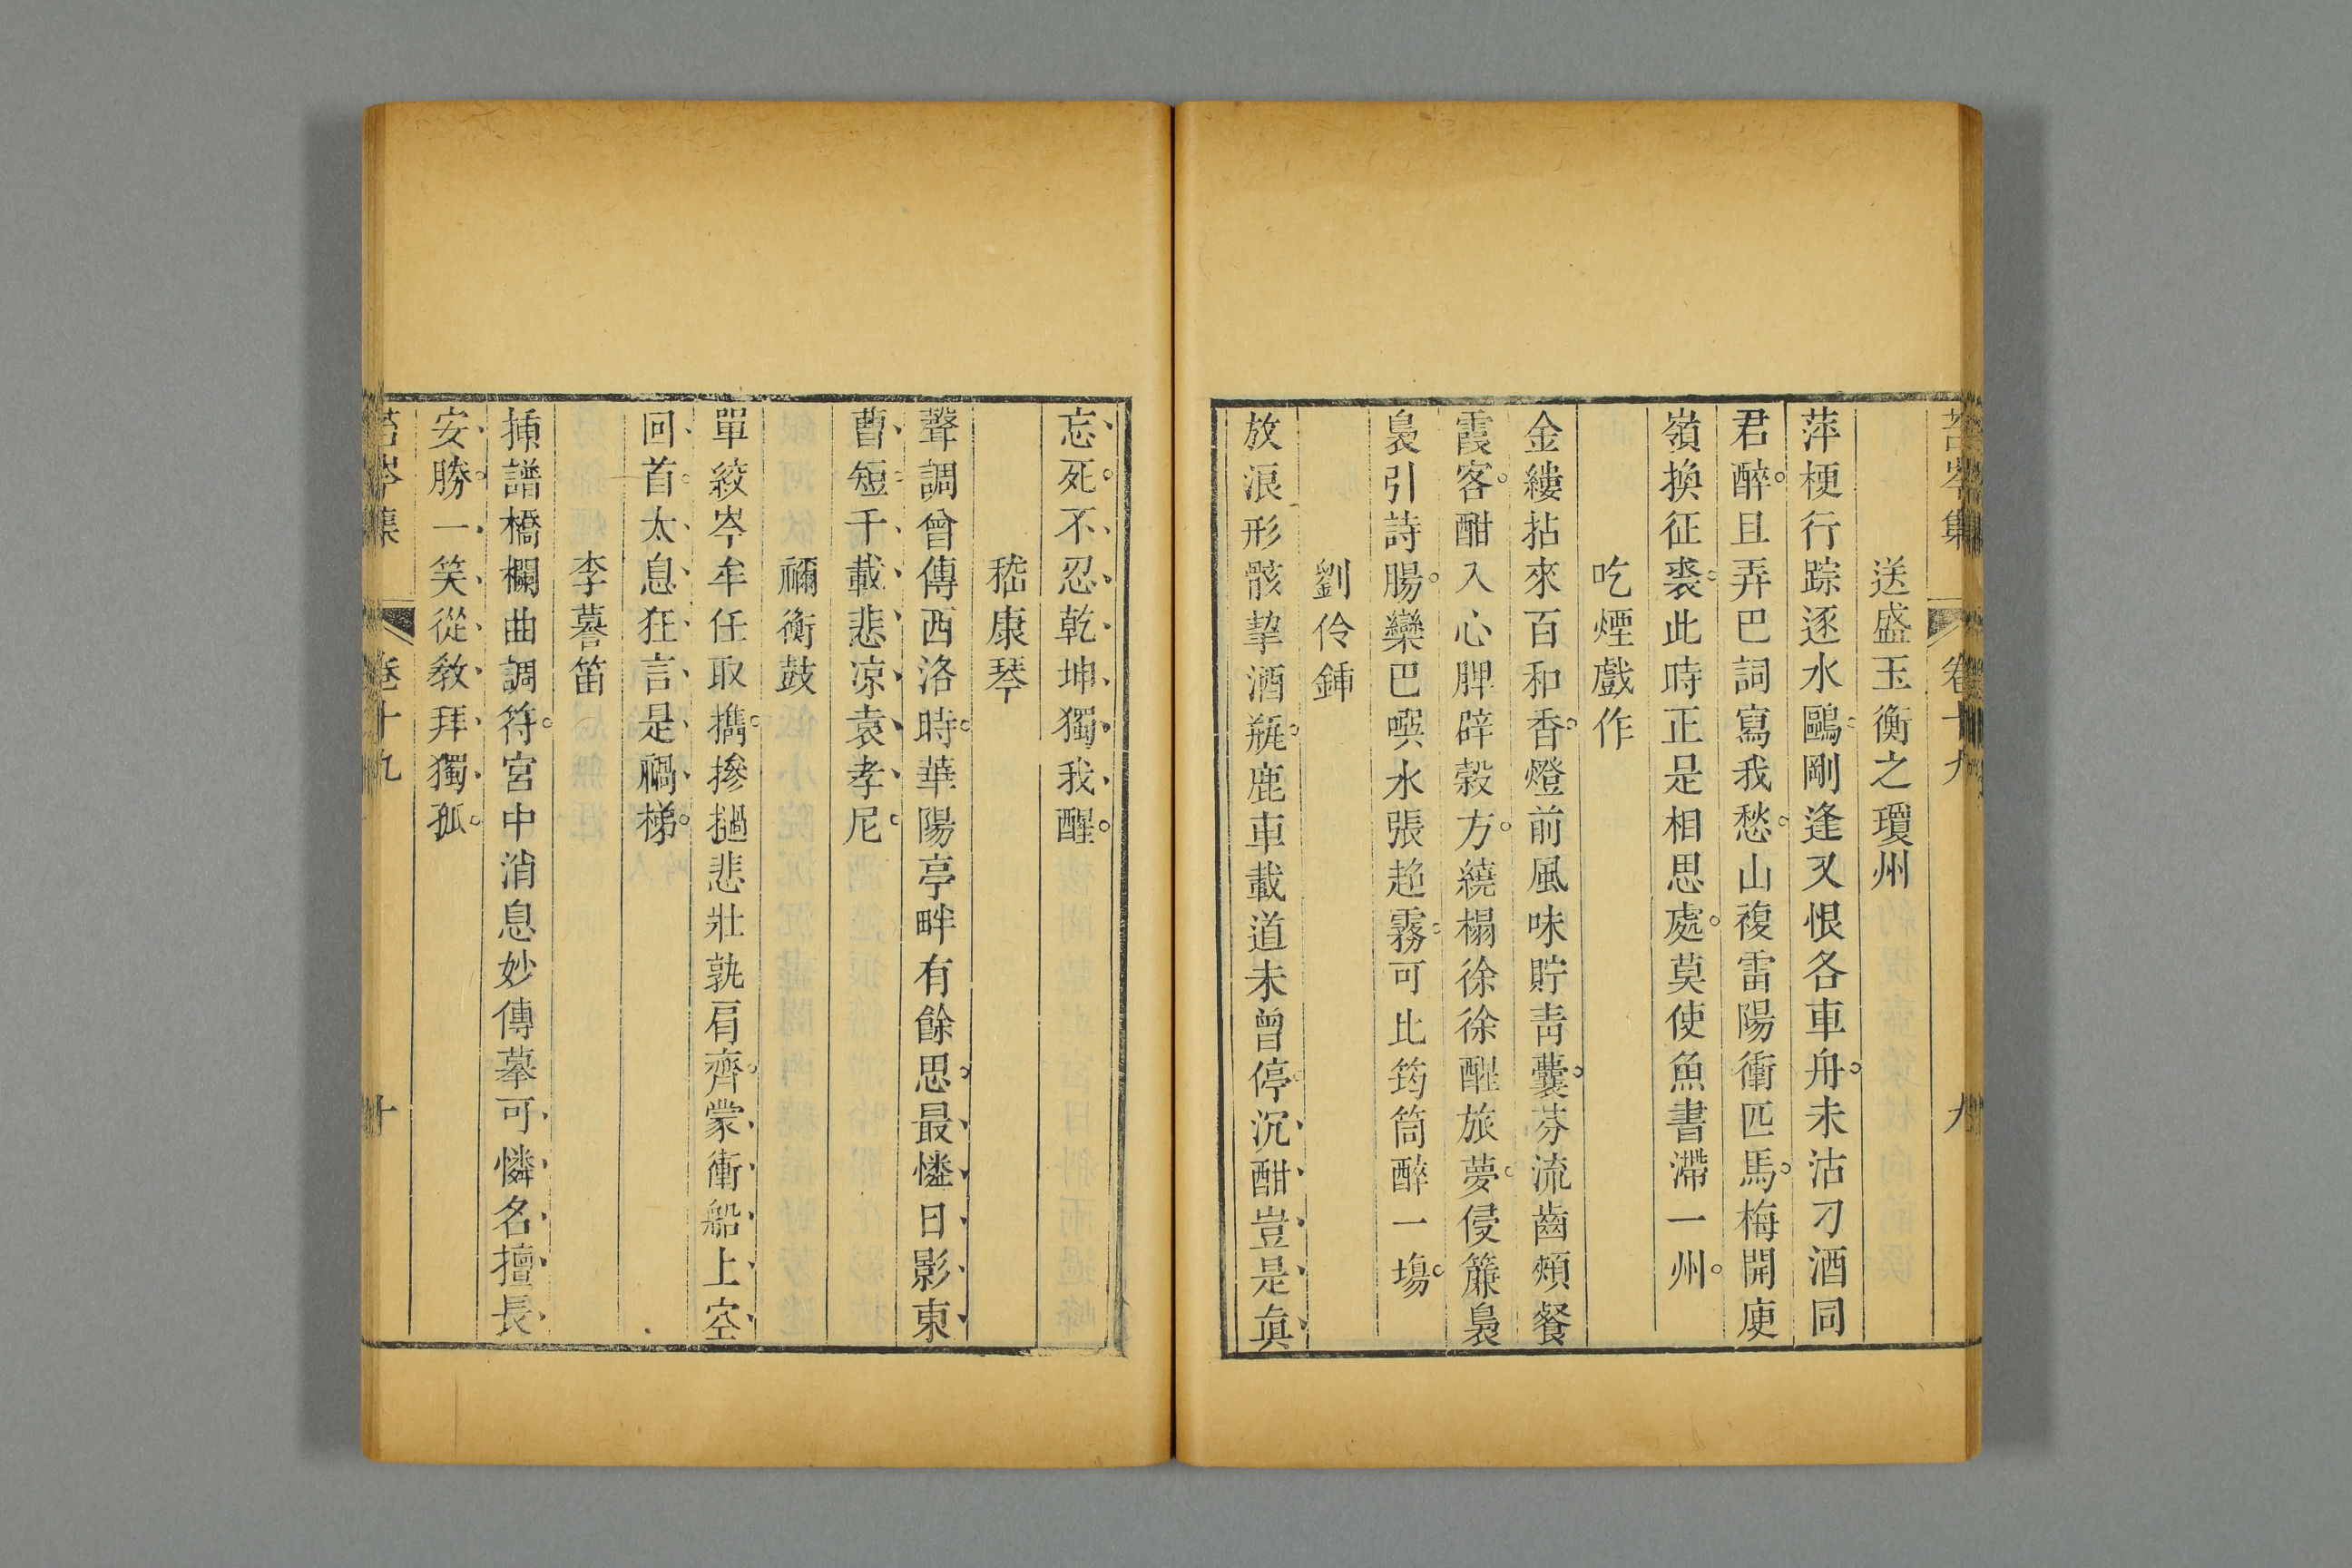 苔岑集 卷十九 九
送盛玉衡之瓊州
萍梗行踪逐水鷗剛逢又恨各車舟未沽刁酒同
君醉且弄巴詞寫我愁山複雷陽衝匹馬梅開庾
嶺換征裘此時正是相思處莫使魚書滯一州
吃煙戲作
金縷拈來百和香燈前風味貯靑囊芬流齒頰餐
霞客酣入心脾辟穀方繞榻徐徐醒旅夢侵簾裊
裊引詩腸欒巴噀水張趋霧可比筠筒醉一塲
劉伶鍤
放浪形骸挈酒瓶鹿車載道未曾停沉酣豈是眞
忘死不忍乾坤獨我醒
嵇康琴
聲調曾傳西洛時華陽亭畔有餘思最憐日影東
曹短千載悲凉袁孝尼
禰衡鼓
單絞岑牟任取擕摻撾悲壯孰肩齊蒙衝船上空
回首太息狂言是禍梯
李謩笛
插譜橋欄曲調符宮中消息妙傳摹可憐名擅長
安勝一笑從敎拜獨孤
苔岑集 卷十九 十